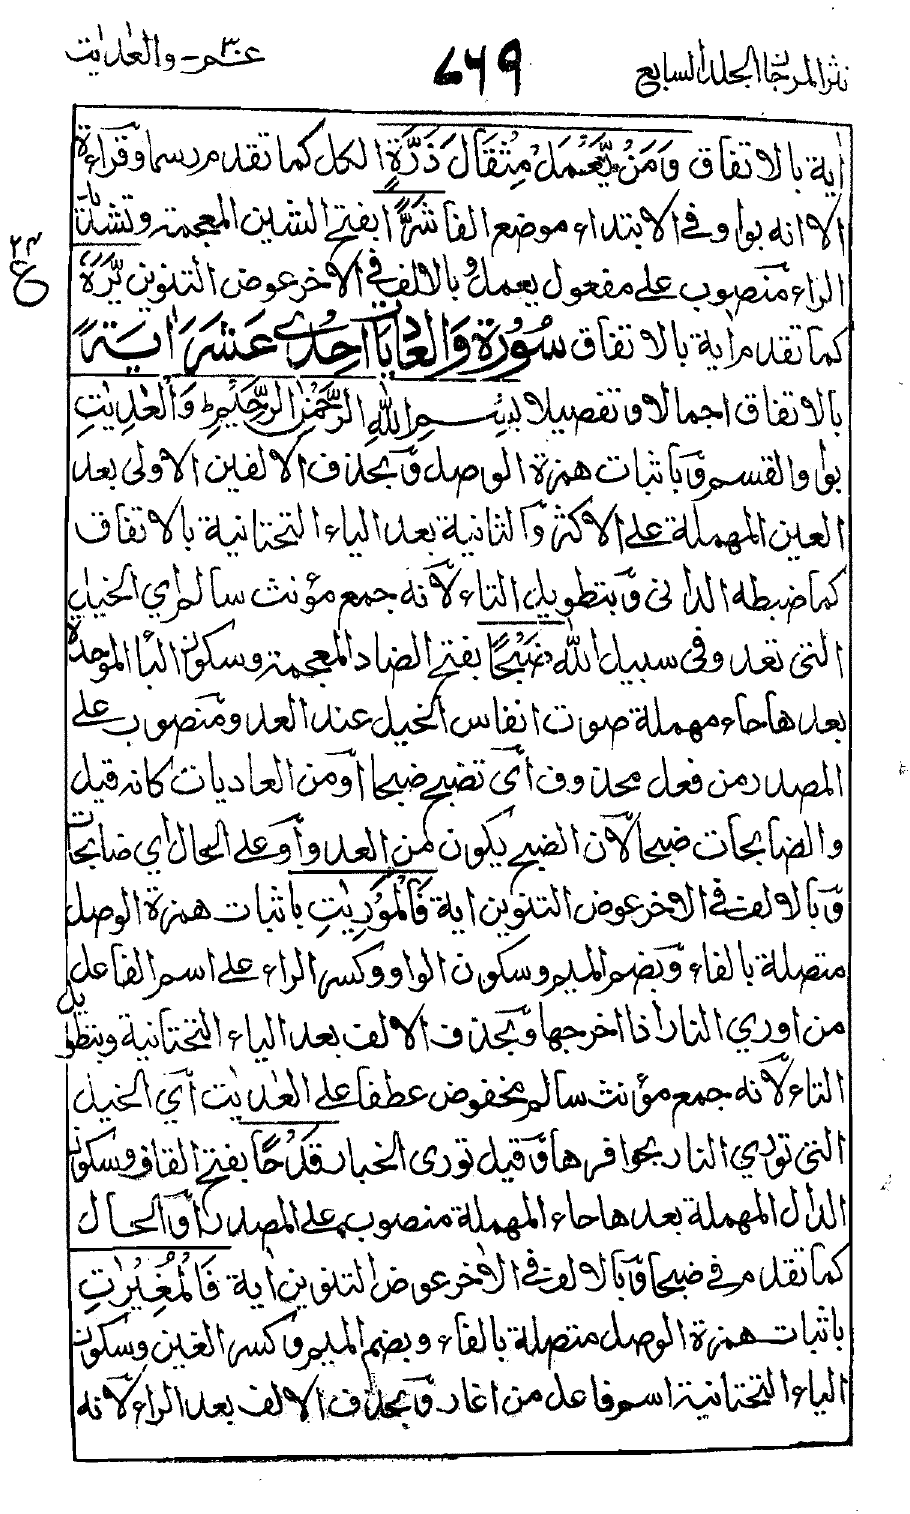 نثر المرجان الجلد السابع
٧٦٩
عم٣٠ - والعٰدیٰت
اٰیة بالاتفاق وَمَنْ یَّعْمَلْ مِثْقَالَ ذَرَّةٍ الکل کما تقدم رسما وقراءة
الا انه بواو فی الابتداء موضع الفا شَرًّا بفتح الشین المعجمة وتشدید
الراء منصوب علی مفعول یعمل وبالالف فی الاخر عوض التنوین یَّرَهٗ
کما تقدم اٰیة بالاتفاق سُوْرَة وَالعادیات اَحِدٰی عَشَرَ اٰیَةً
بالاتفاق اجمالا وتفصیلا بِسْمِ اللّٰهِ الرَّحْمٰنِ الرَّحِیْمِ وَالْعٰدِیٰتِ
بواو القسم وباثبات همزة الوصل وبحذف الالفین الاولی بعد
العین المهملة علی الاکثر والثانیة بعد الیاء التحتانیة بالاتفاق
کما ضبطه الدانی وبتطویل التاء لانه جمع مؤنث سالم ای الخیل
التی تعدو فی سبیل اللّٰه ضَبْحًا بفتح الضاد المعجمة وسکون البا الموحدة
بعدها حاء مهملة صوت انفاس الخیل عند العدو منصوب علی
المصدر من فعل محذوف ای تضبح ضبحا او من العادیات کانه قیل
والضابحات ضبحا لان الضبح یکون من العدو او علی الحال ای ضابحات
وبالالف فی الاخر عوض التنوین اٰیة فَالْمُوْرِیٰتِ باثبات همزة الوصل
متصلة بالفاء وبضم المیم وسکون الواو وکسر الراء علی اسم الفاعل
من اوری النار اذا اخرجها وبحذف الالف بعد الیاء التحتانیة وبتطویل
التاء لانه جمع مؤنث سالم مخفوض عطفا علی العٰدیٰت ای الخیل
التی توری النار بحوافرها وقیل توری الحباب قَدْحًا بفتح القاف وسکون
الدال المهملة بعدها حاء المهملة منصوب علی المصدر او الحال
کما تقدم فی ضبحا وبالالف فی الاخر عوض التنوین اٰیة فَالْمُغِیْرٰتِ
باثبات همزة الوصل متصلة بالفاء وبضم المیم وکسر الغین وسکون
الیاء التحتانیة اسم فاعل من اغار وبحذف الالف بعد الراء لانه